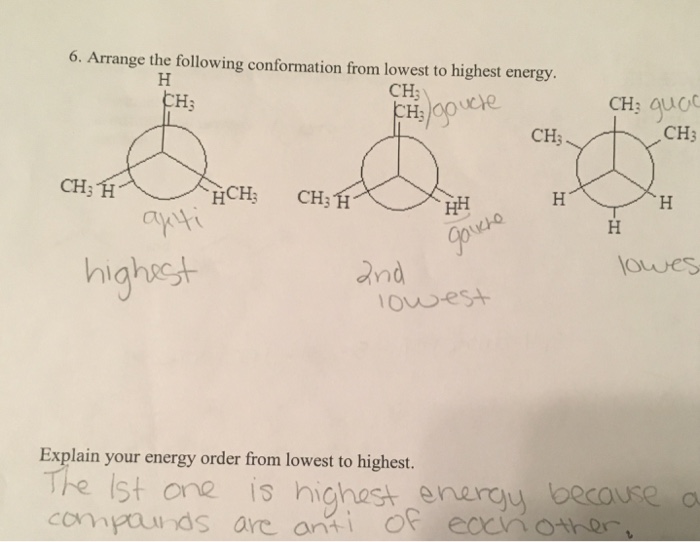 6. Arrange the following conformation from lowest to highest energy.
H
CH₃
CH₃ H
HCH₃
anti
highest
CH₃
CH₃) gouche
CH₃ H
HH
gouche
2nd
lowest
CH₃ guac
CH₃
CH₃
H
H
H
lowes
Explain your energy order from lowest to highest.
The 1st one is highest energy because a
compounds are anti of each other.